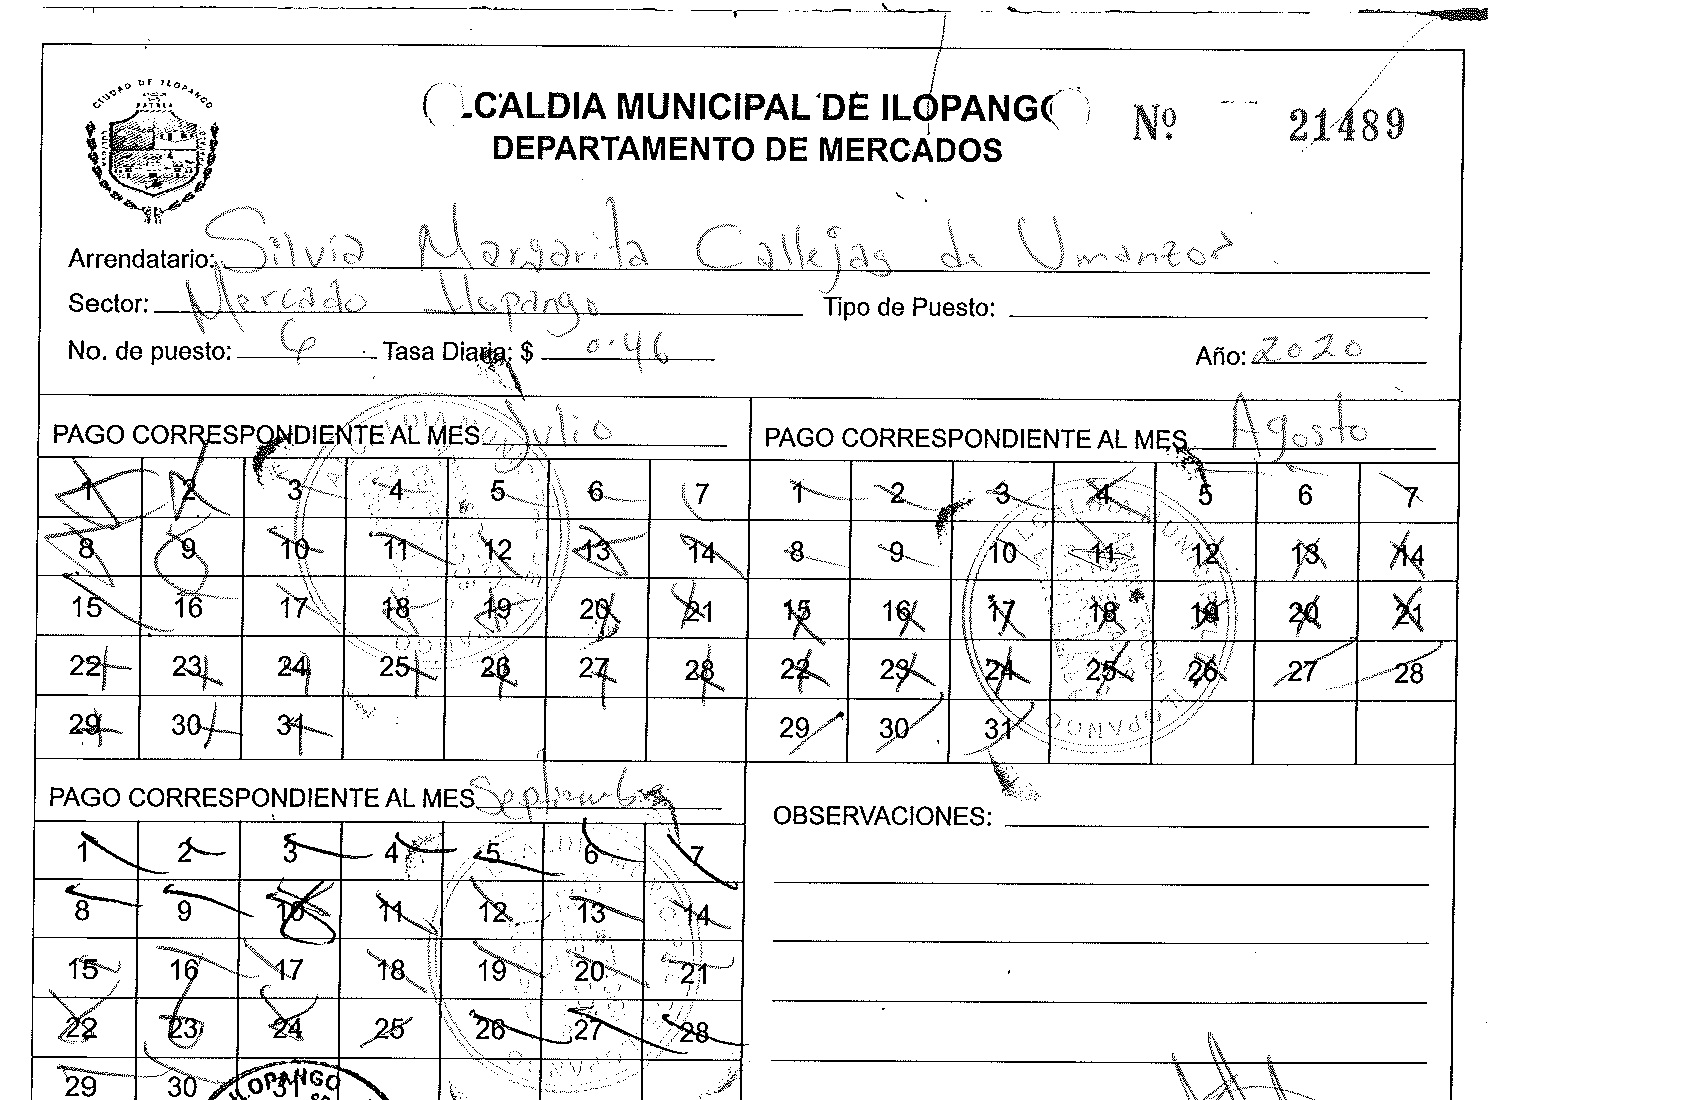 CIUDAD DE ILOPANGO
.CALDIA MUNICIPAL DE ILOPANGO
DEPARTAMENTO DE MERCADOS
Nº. 21489
Arrendatario: Silvia Margarita Callejas de Umanzor
Sector: Mercado Ilopango Tipo de Puesto:
No. de puesto: 6 Tasa Diaria: $ 0.46 Año: 2020
PAGO CORRESPONDIENTE AL MES Julio
1 2 3 4 5 6 7
8 9 10 11 12 13 14
15 16 17 18 19 20 21
22 23 24 25 26 27 28
29 30 31
PAGO CORRESPONDIENTE AL MES Agosto
1 2 3 4 5 6 7
8 9 10 11 12 13 14
15 16 17 18 19 20 21
22 23 24 25 26 27 28
29 30 31
PAGO CORRESPONDIENTE AL MES Septiembre
1 2 3 4 5 6 7
8 9 10 11 12 13 14
15 16 17 18 19 20 21
22 23 24 25 26 27 28
29 30 31
ILOPANGO
OBSERVACIONES: